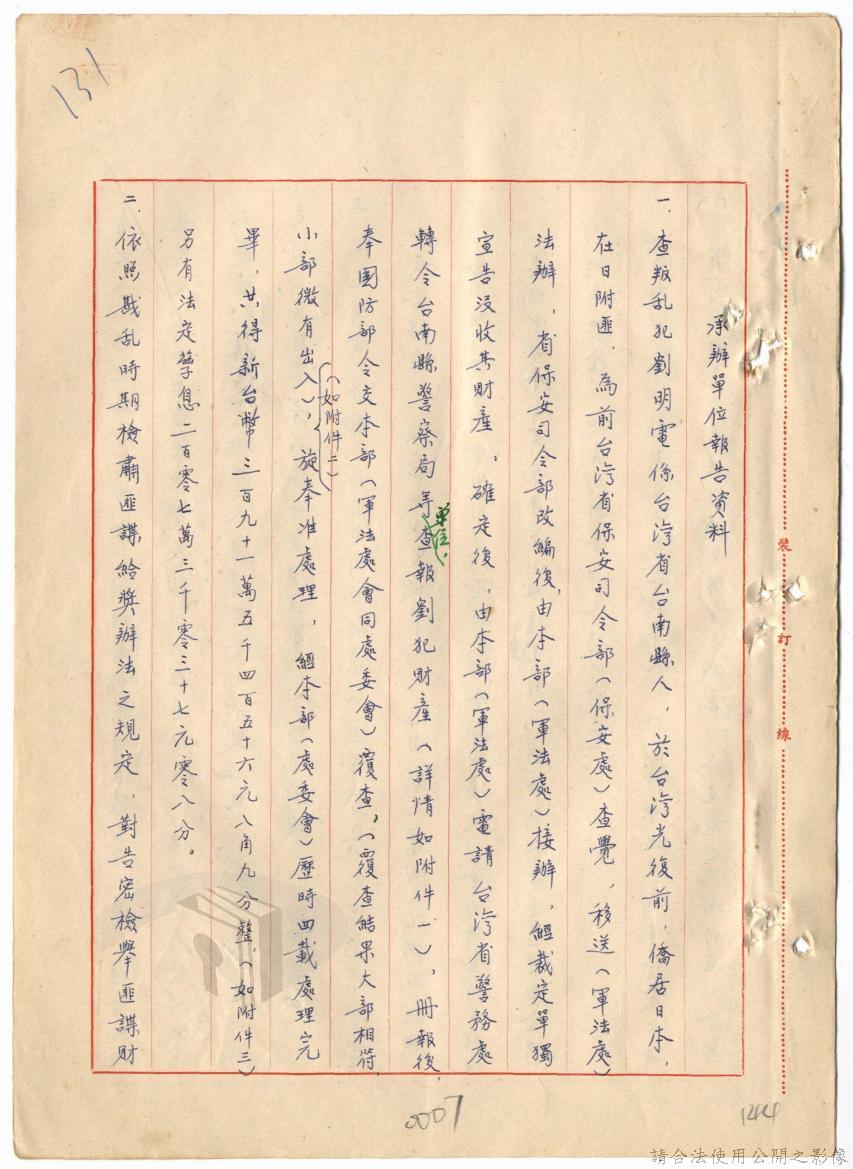 131
承辦單位報告資料
一.查叛乱犯劉明電係台灣省台南縣人，於台灣光復前，僑居日本，
在日附匪，為前台灣省保安司令部（保安處）查覺，移送（軍法處）
法辦，省保安司令部改編後，由本部（軍法處）接辦，經裁定單獨
宣告沒收其財產，確定後，由本部（軍法處）電請台灣省警務處
轉令台南縣警察局等單位，查報劉犯財產（詳情如附件一），冊報後，
奉國防部令交本部（軍法處會同處委會）覆查，（覆查結果大部相符，
小部微有出入），（如附件二）旋奉准處理，經本部（處委會）歷時四載處理完
畢，共得新台幣三百九十一萬五千四百五十六元八角九分整，（如附件三）
另有法定孳息二百零七萬三千零三十七元零八分。
二.依照戡乱時期檢肅匪諜給獎辦法之規定，對告密檢舉匪諜財
裝
訂
線
0007
請合法使用公開之影像